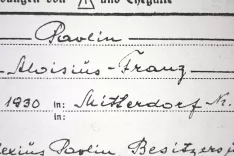 und Ehegatte
Pavlin
Aloisius-Franz
1930 in: Mitterdorf Nr.
in:
Pavlin Besitzers